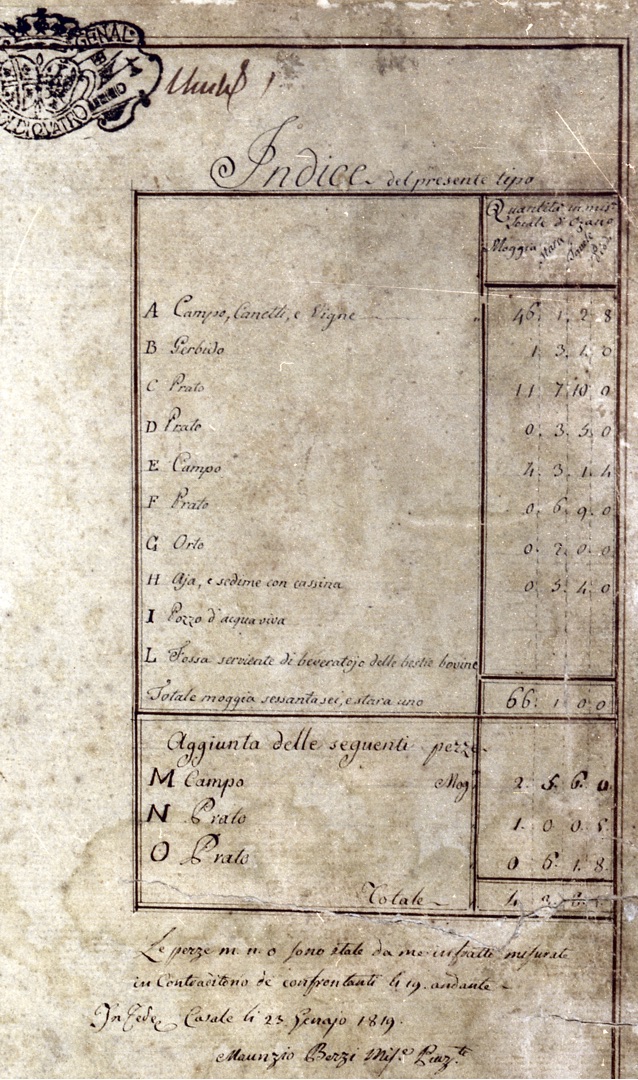 GENAL
DI QUATRO
Indice del presente tipo
Quantità in mis.
locale di Ozano
Moggia Stara Tavole Piedi
A Campo, Canetti, e Vigne 46. 1. 2. 8
B Gerbido 1. 3. 1. 0
C Prato 11 7. 10. 0
D Prato 0. 3. 5. 0
E Campo 4. 3. 1. 4
F Prato 0. 6. 9. 0
G Orto 0. 7. 0. 0
H Aja, e sedime con cassina 0 5. 4. 0
I Pozzo d'acqua viva
L Fossa serviente di beveratojo delle bestie bovine
Totale moggia sessantasei, e stara uno 66. 1 0. 0
Aggiunta delle seguenti pezze
M Campo Mog. 2. 5. 6. 0
N Prato 1. 0 0. 5
O Prato 0 6. 1. 8
Totale 4
Le pezze m. n. o sono state da me infratti misurate
in Contraditorio de confrontanti li 19. andante
In fede, Casale li 23 Genajo 1819.
Maurizio Berzi Mis.e